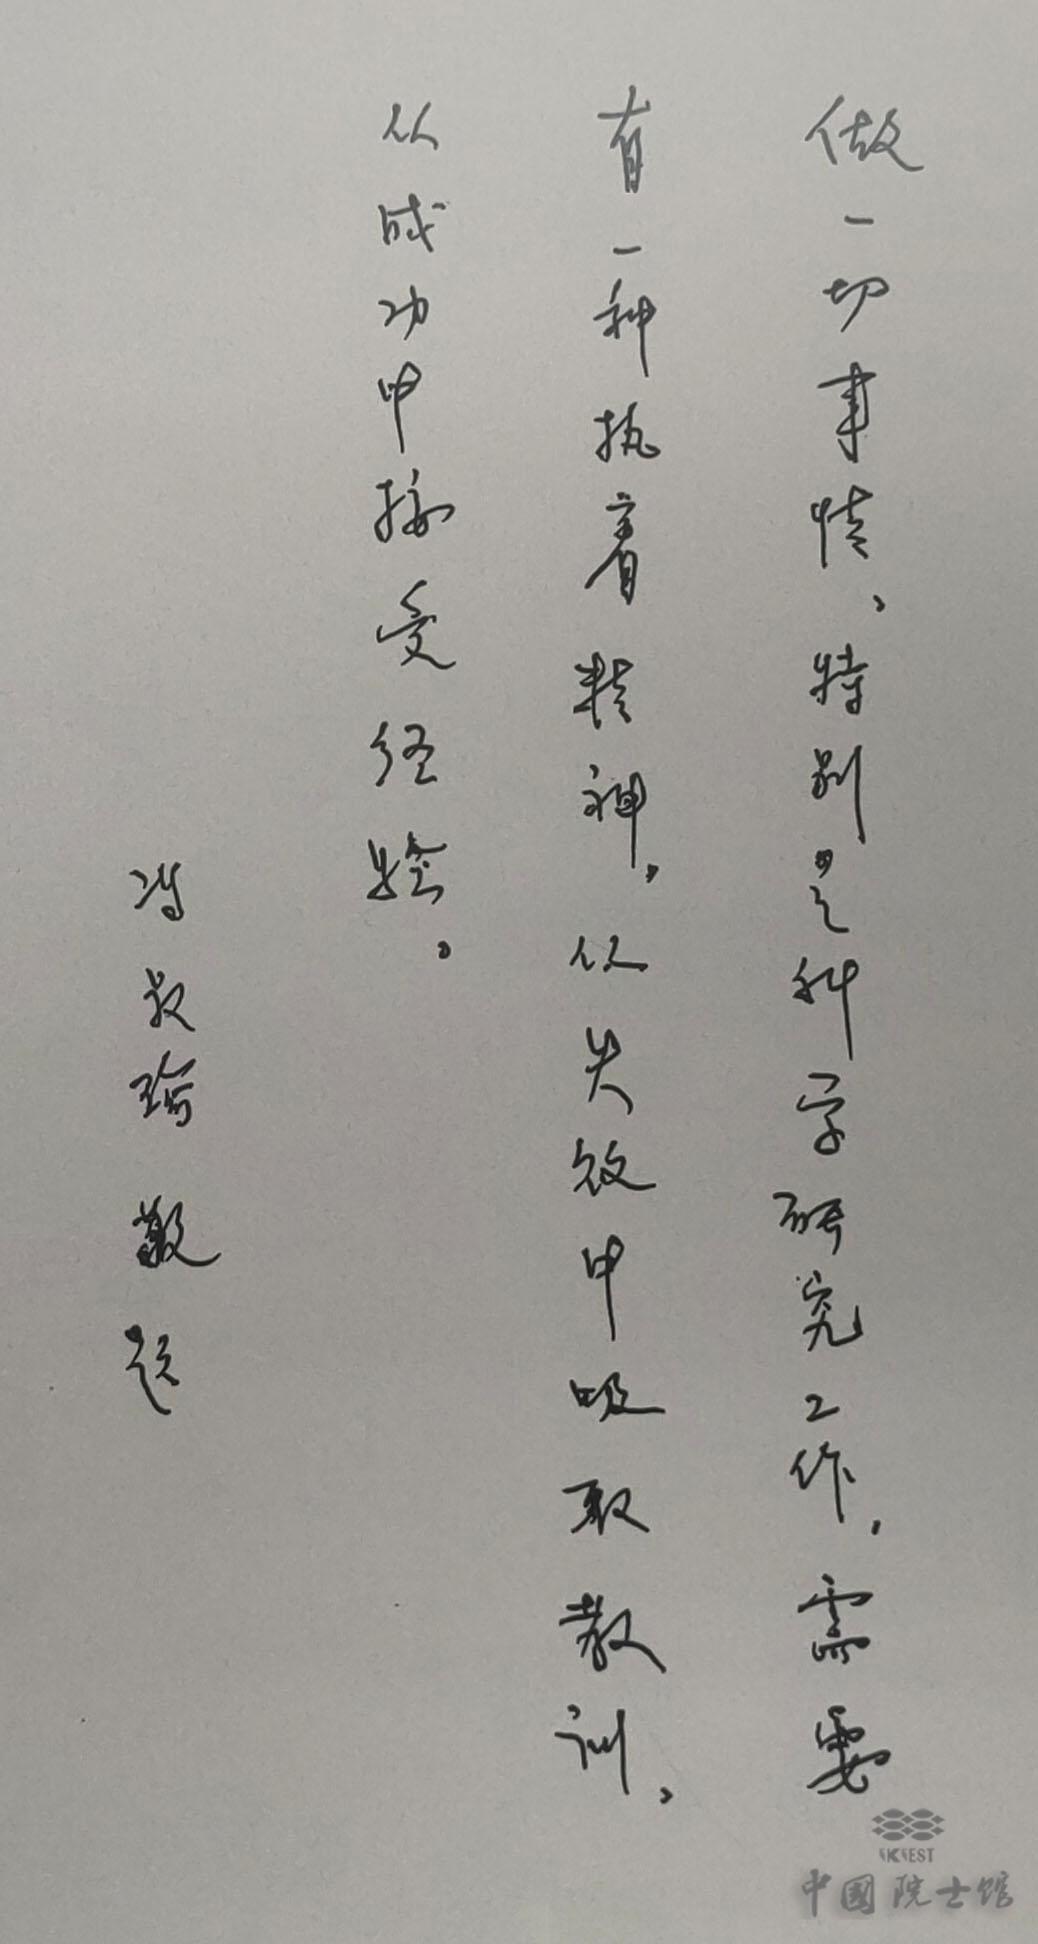 做一切事情、特别是科学研究工作,需要
有一种执着精神,从失败中吸取教训,
从成功中接受经验。
冯叔瑜 敬题
IKCEST
中國院士馆